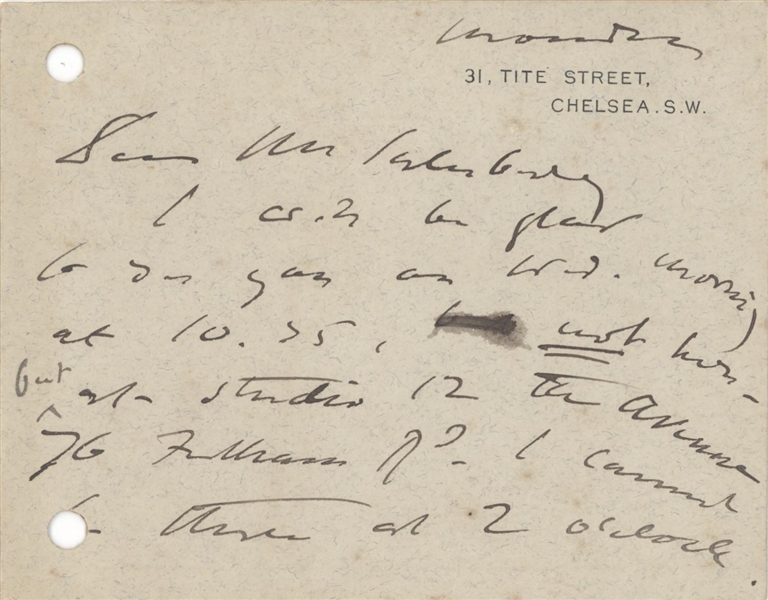 Monday
31, TITE STREET,
CHELSEA. S.W.
Dear Mr
I will be glad
to see you on Wed. morning
at 10.35, not here -
but at studio 12 The Avenue
76 Fulham Rd. I cannot
be there at 2 o'clock.